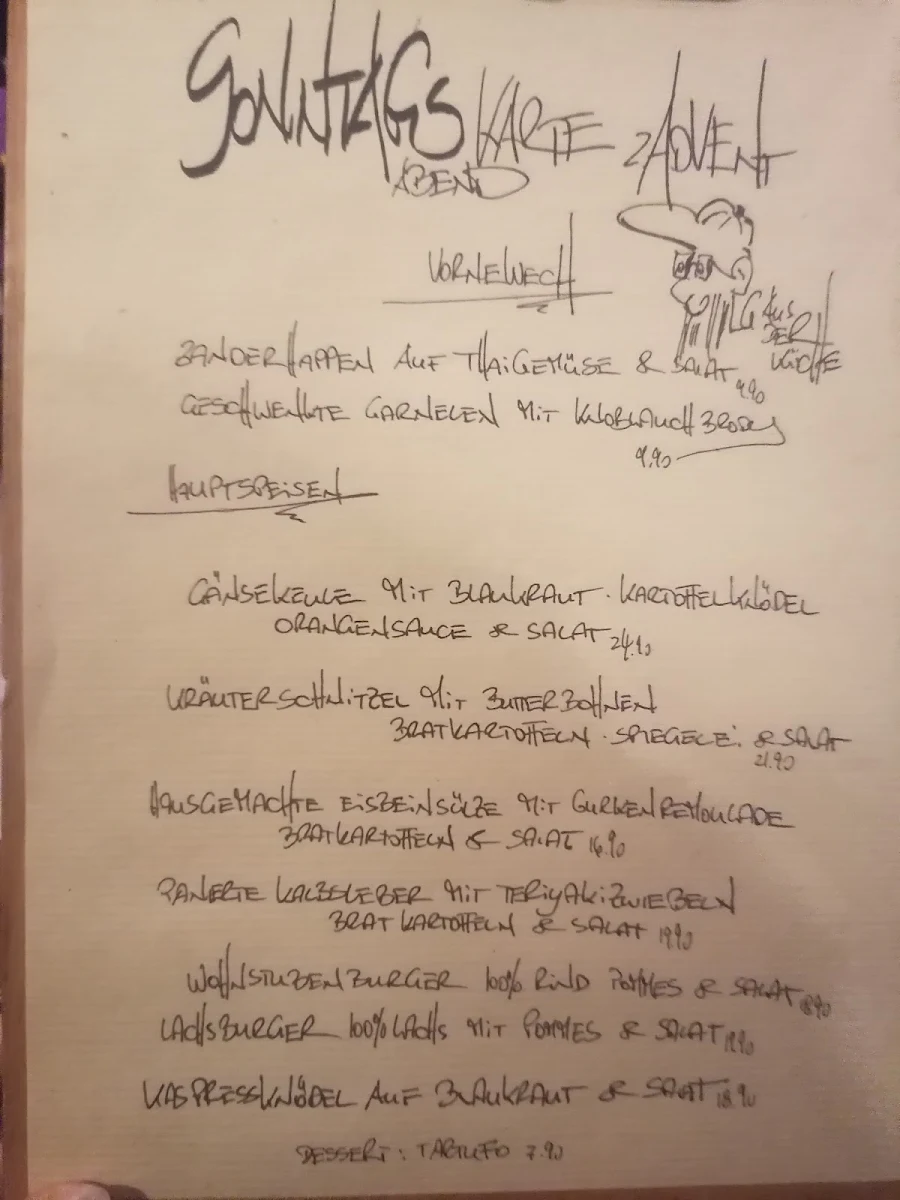 SONNTAGS KARTE 2 ADVENT
ABEND
VORNEWECH
AUS
DER
KÜCHE
ZANDERHAPPEN AUF THAIGEMÜSE & SALAT 9.90
GESCHWENKTE GARNELEN MIT KNOBLAUCHBROD
9.90
HAUPTSPEISEN
GÄNSEKEULE MIT BLAUKRAUT · KARTOFFELKNÖDEL
ORANGENSAUCE & SALAT 24.90
KRÄUTERSCHNITZEL MIT BUTTERBOHNEN
BRATKARTOFFELN · SPIEGELEI & SALAT
21.90
HAUSGEMACHTE EISBEINSÜLZE MIT GURKENREMOULADE
BRATKARTOFFELN & SALAT 16.90
PANIERTE KALBSLEBER MIT TERIYAKIZWIEBELN
BRATKARTOFFELN & SALAT 19.90
WOHNSTUBENBURGER 100% RIND POMMES & SALAT 18.90
LACHSBURGER 100% LACHS MIT POMMES & SALAT
KASPRESSKNÖDEL AUF BLAUKRAUT & SALAT 18.90
DESSERT: TARTUFO 7.90